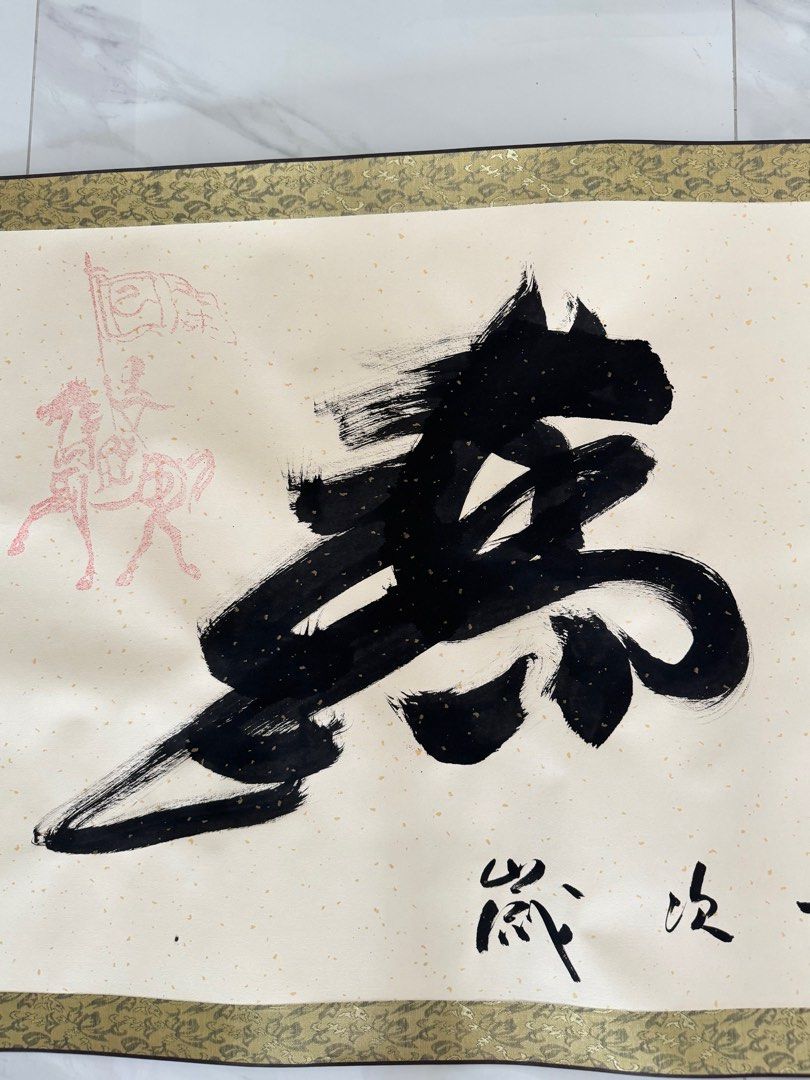 馬
歲次